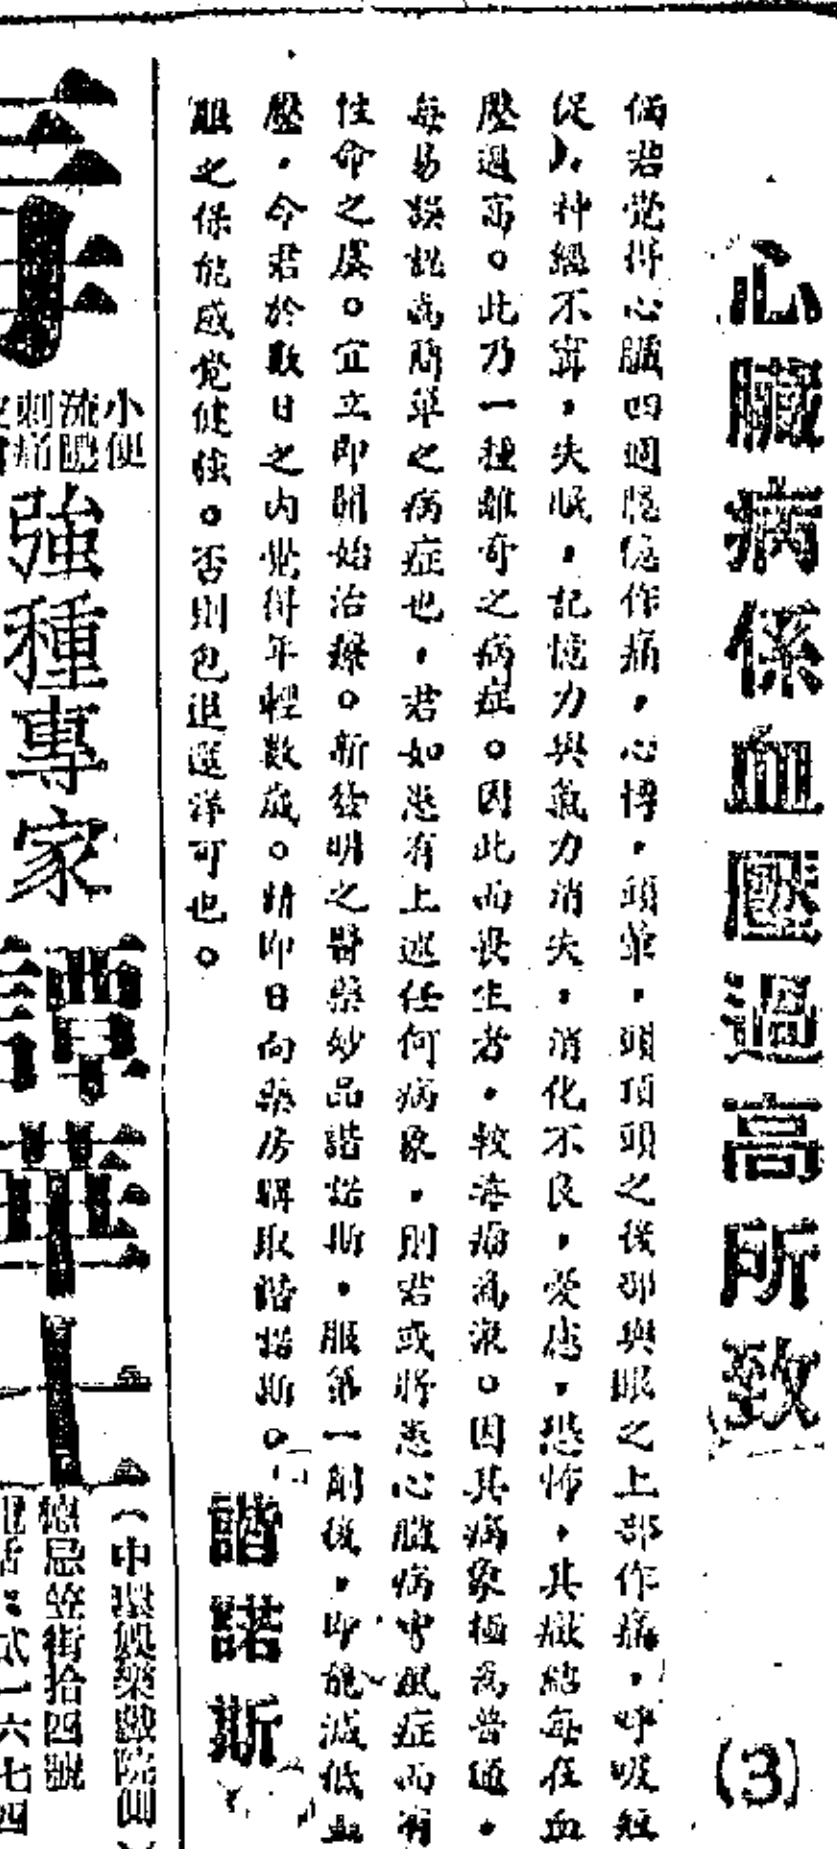 心臟病係血壓過高所致
(3)
倘君覺得心臟四週隱隱作痛，心博，頭暈，頭頂頭之後部與眼之上部作痛，呼吸短
促)，神經不寧，失眠，記憶力與氣力消失，消化不良，憂慮，恐怖，其癥結每在血
壓過高。此乃一種離奇之病症。因此而喪生者，較毒瘤為眾。因其病象極為普通，
每易誤認為簡單之病症也，君如患有上述任何病象，則君或將患心臟病中風症而有
性命之虞。宜立即開始治療。新發明之醫藥妙品諧諾斯，服第一劑後，即能減低血
壓，今君於數日之內覺得年輕數歲。請即日向藥房購取諧諾斯。
服之保能感覺健強。否則包退還洋可也。
諧諾斯
小便
流膿
刺痛
強種專家
譚華十
(中環娛樂戲院側)
德忌笠街拾四號
電話：式一六七四